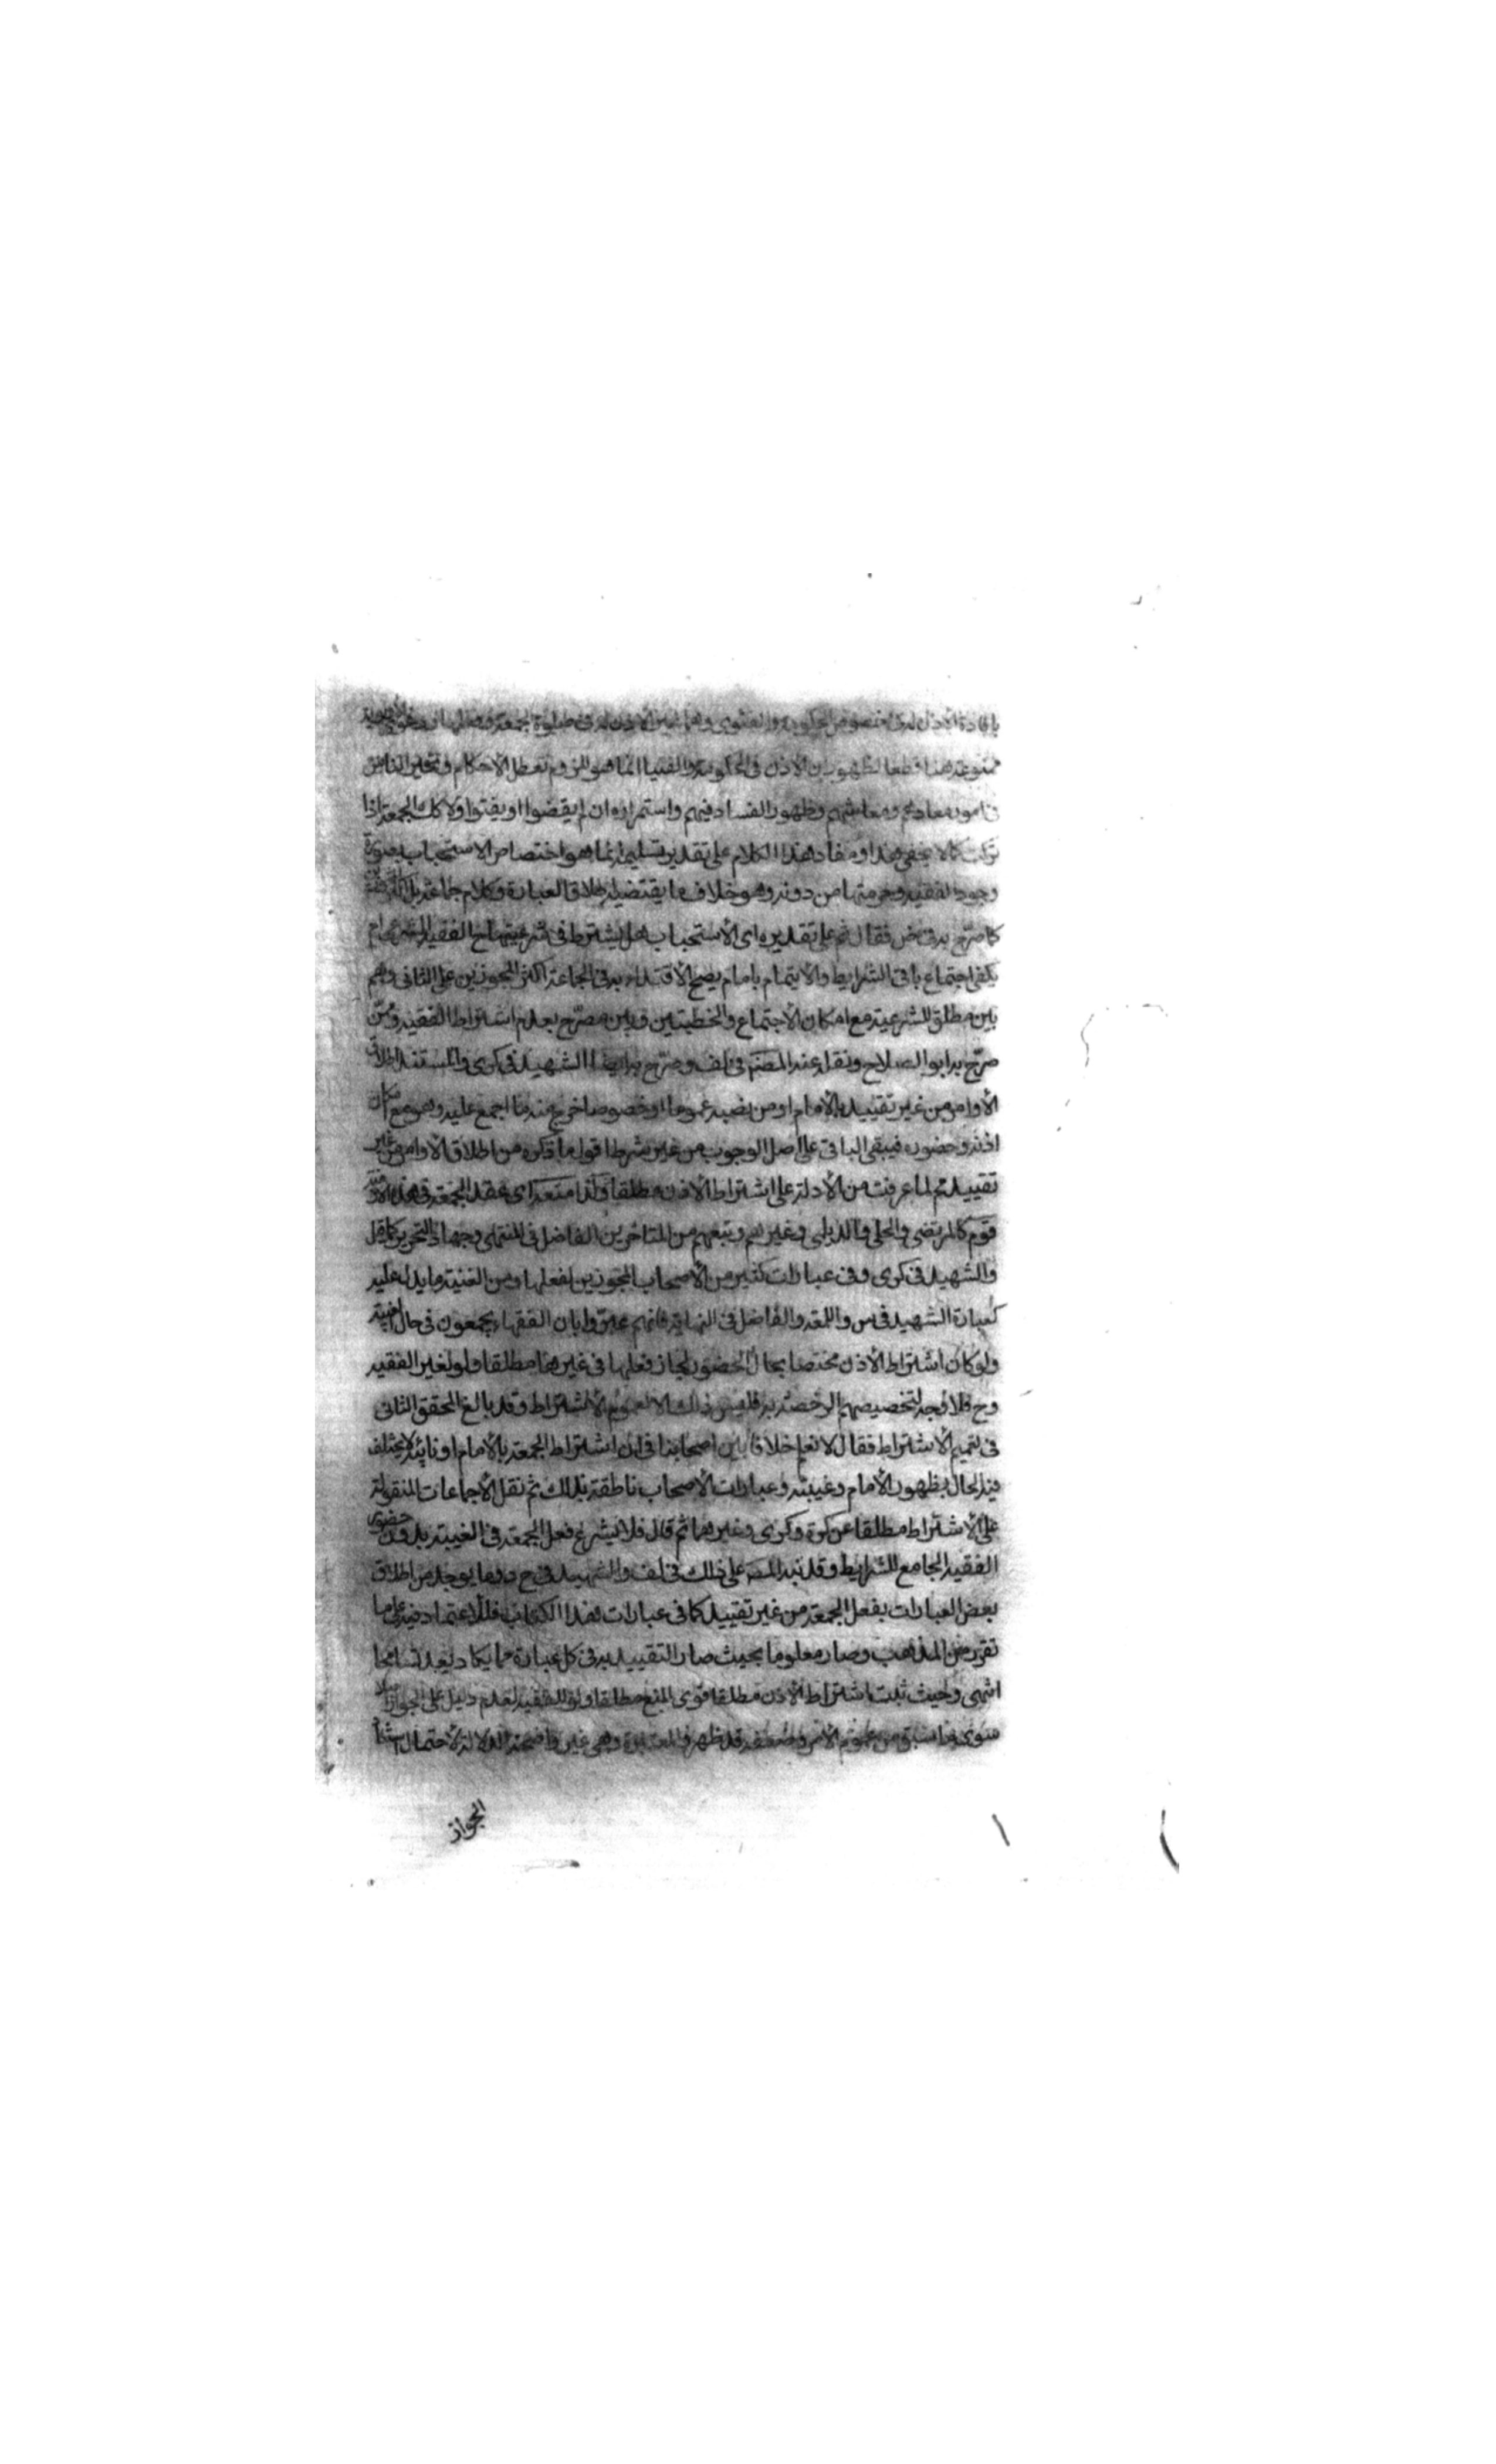 لظهور ان الاذن في الحكومة والفتيا انما هو للزوم تعطل الأحكام وتحير الناس
في امور معادهم ومعاشهم وظهور الفساد فيهم واستمراره ان لم يقضوا او يفتوا ولا كك الجمعة اذا
تركت كما لا يخفى هذا ومفاد هذا الكلام على تقدير تسليمه انما هو اختصاص الاستحباب بصورة
وجود الفقيه وحرمتها من دونه وهو خلاف ما يقتضيه اطلاق العبارة وكلام جماعة بل
كما صرّح به في ض فقال ثم على تقديره اى الأستحباب هل يشترط في شرعيتها ح الفقيه الشرعى ام
يكفى اجتماع باقى الشرايط والأيتمام بامام يصح الأقتداء به في الجماعة اكثر المجوزين على الثانى وهم
بين مطلق للشرعية مع امكان الأجتماع والخطبتين وبين مصرّح بعدم اشتراط الفقيه وممّن
صرّح به ابو الصلاح ونقله عنه المصنّم في لف وصرّح به ايضا الشهيد في كرى والمستند اطلاق
الأوامر من غير تقييد بالأمام او من نصبه عموما او خصوصا خرج منه ما اجمع عليه وهو مع امكان
اذنه وحضوره فيبقى الباقى على اصل الوجوب من غير شرط اقول ما ذكره من اطلاق الأوامر من غير
تقييد تم لما عرفت من الأدلة على اشتراط الأذن مطلقا ولذا منعه اى عقد الجمعة في هذه
قوم كالمرتضى والحلى والديلمى وغيرهم وتبعهم من المتاخرين الفاضل في المنتهى وجهاد التحرير كما قيل
والشهيد في كرى وفي عبارات كثير من الأصحاب المجوزين لفعلها زمن الغيبة ما يدل عليه
كعبارة الشهيد في س واللمعه والفاضل في النهاية فانهم عبروا بان الفقهاء يجمعون في حال الغيبة
ولو كان اشتراط الأذن مختصا بحال الحضور لجاز فعلها في غيرها مطلقا ولو لغير الفقيه
وح فلا وجه لتخصيصهم الرخصة به فليس ذلك الا لعموم الأشتراط وقد بالغ المحقق الثانى
في تعميم الأشتراط فقال لا نعلم خلافا بين اصحابنا في ان اشتراط الجمعة بالأمام او نائبه لا يختلف
فيه الحال بظهور الأمام وغيبته وعبارات الأصحاب ناطقة بذلك ثم نقل الأجماعات المنقولة
على الأشتراط مطلقا عن كرة وكرى وغيرهما ثم قال فلا يشرع فعل الجمعة في الغيبة بدون حضور
الفقيه الجامع للشرايط وقد نبه المصم على ذلك في لف والشهيد في ح د وما يوجد من اطلاق
بعض العبارات بفعل الجمعة من غير تقييد كما في عبارات هذا الكتاب فللأعتماد فيه على ما
تقرر من المذهب وصار معلوما بحيث صار التقييد به في كل عبارة مما يكاد يعد تسامحا
انتهى وحيث ثبت اشتراط الأذن مطلقا قوى المنع مطلقا ولو للفقيه لعدم دليل على الجواز
سوى ما سبق من عموم الأمر وضعفه قد ظهر والمعتبرة وهي غير واضحة الدلالة لأحتمال
الجواز